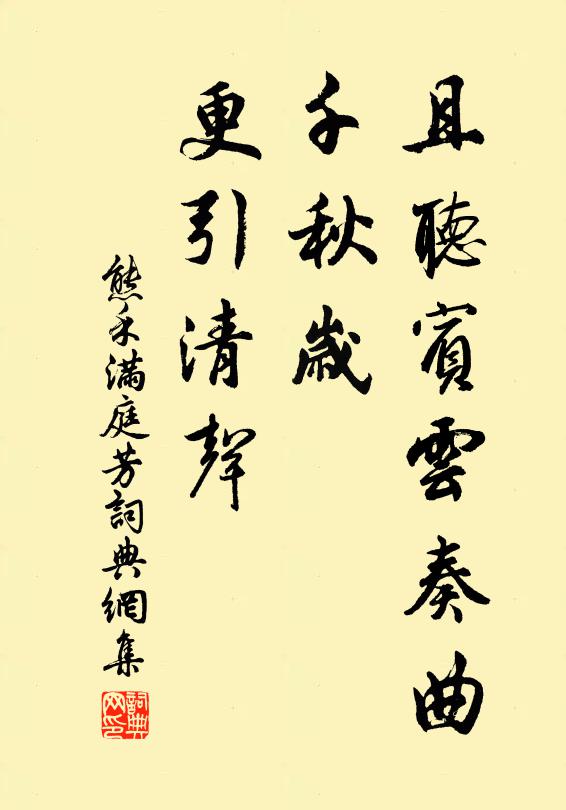 且聽賓雲奏曲
千秋歲
更引清聲
熊禾滿庭芳詞典網集
詞典
网印